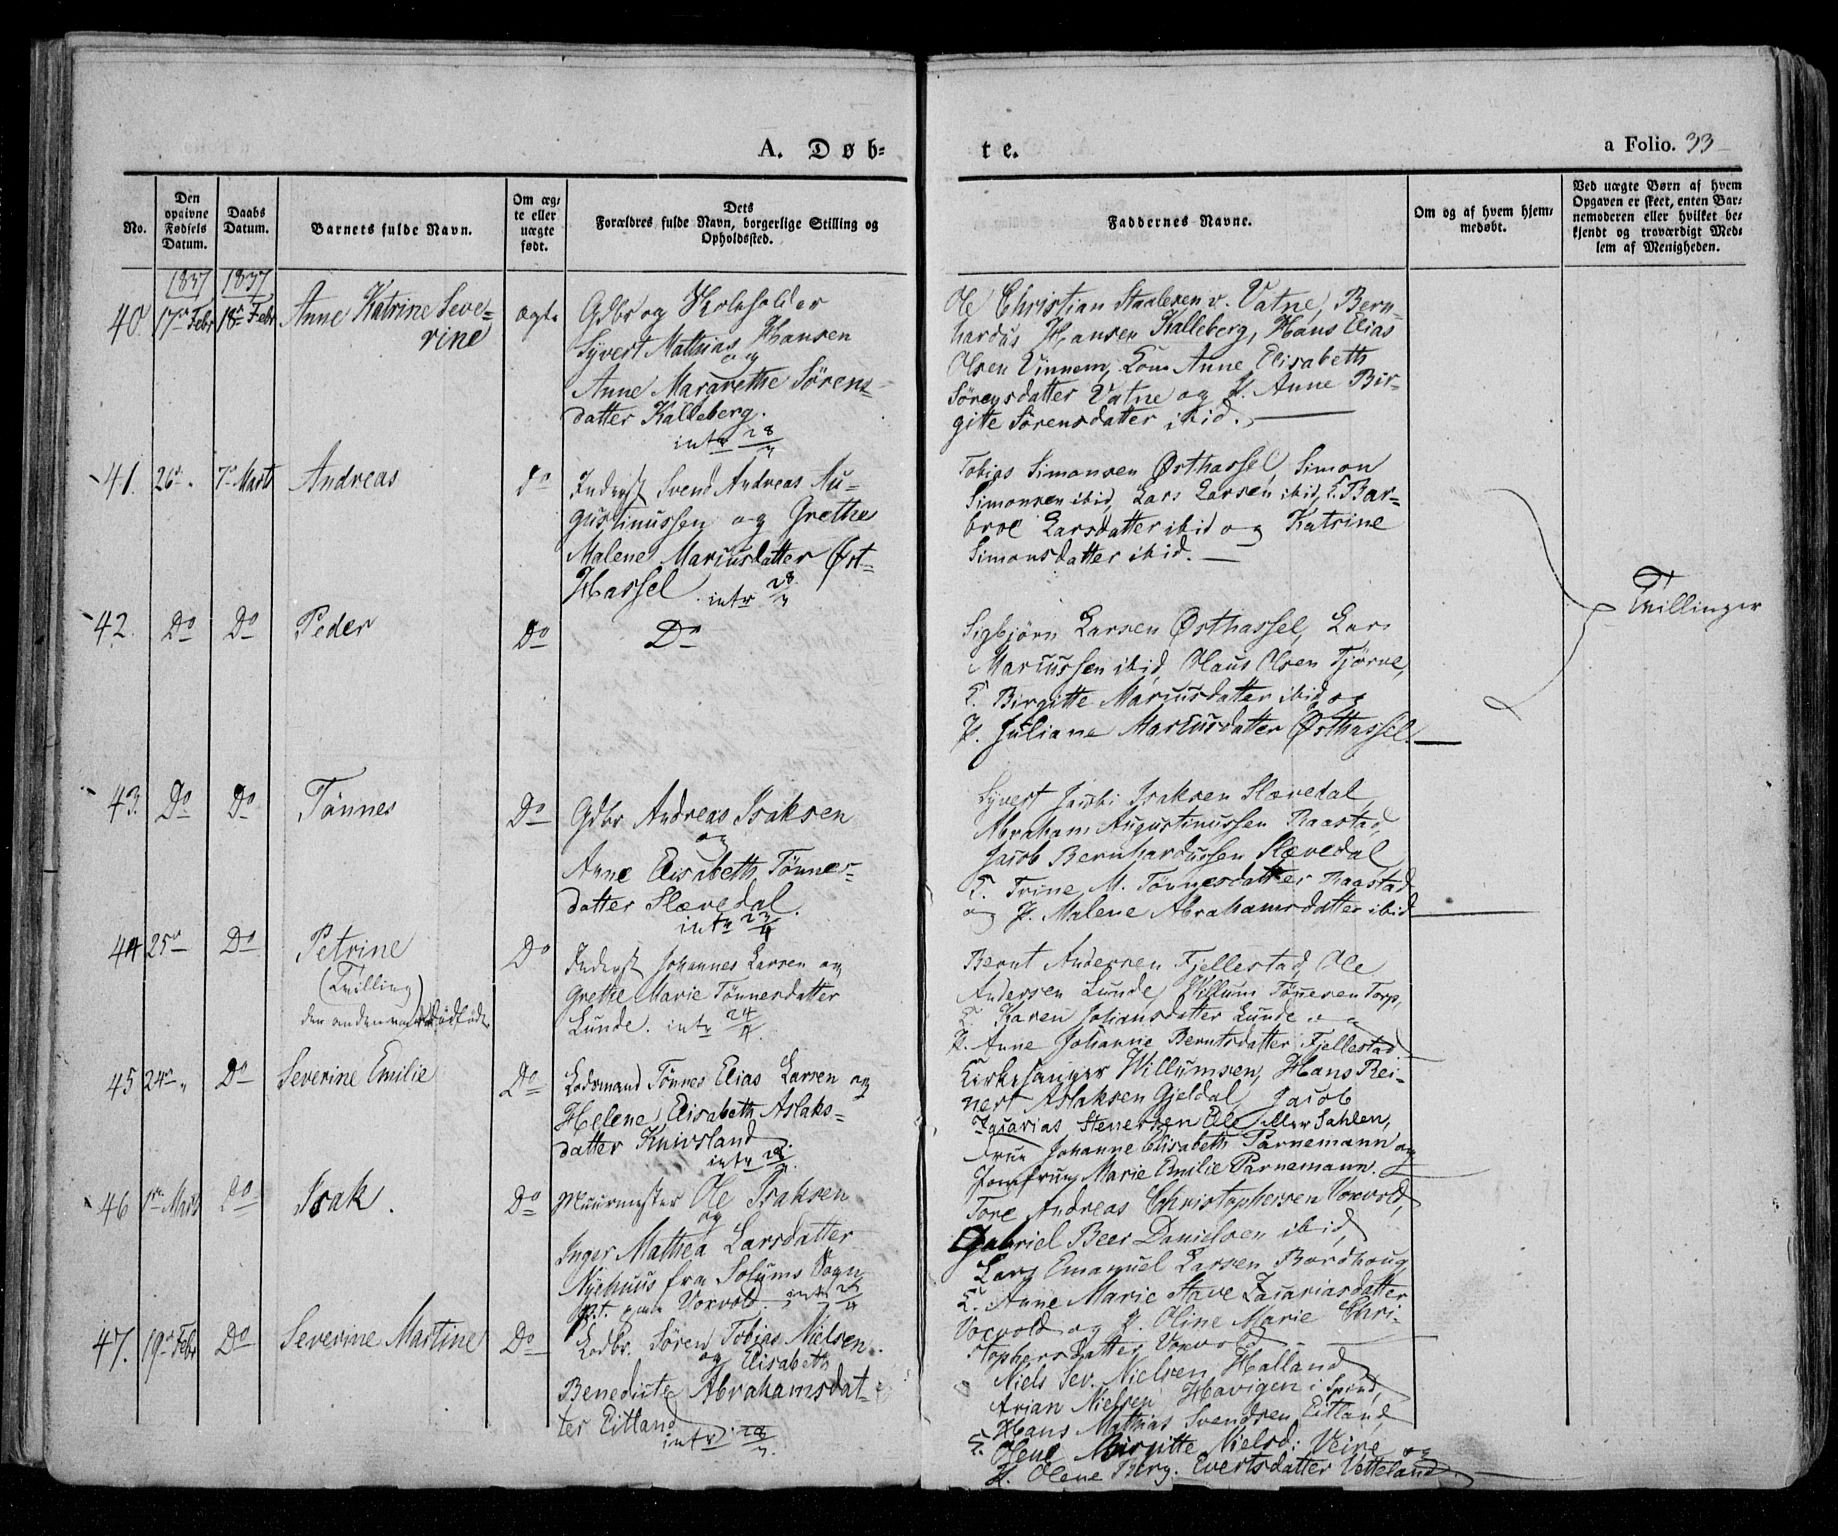 A. Døb-
te.
a Folio. 33
No.
Den opgivne Fødsels Datum.
Daabs Datum.
Barnets fulde Navn.
Om ægte eller uægte født.
Dets
Forældres fulde Navn, borgerlige Stilling og
Opholdssted.
Faddernes Navne.
Om og af hvem hjem-
medøbt.
Ved uægte Børn af hvem
Opgaven er skeet, enten Bar-
nemoderen eller hvilket be-
kjendt og troværdigt Med-
lem af Menigheden.
1837 1837
40 17de Febr 18de Febr Anne Katrine Seve-
rine
ægte
Gdbr og
Syvert Mathias Hansen
og
Anne Margrethe Sørens-
datter Kalleberg.
intr 28
Ole Christian Staalesen v. Vatne, Bern-
hardus Hansen Kalleberg, Hans Elias
Olsen Vinnem, Kone Anne Elisabeth
Sørensdatter Vatne og P. Anne Bir-
gitte Sørensdatter ibid.
41. 26de 7de Marts Andreas
do
Inderst Svend Andreas Au-
gustinussen og Grethe
Malene Mariusdatter Øst-
Hassel intr 28
Tobias Simonsen Østhassel, Simon
Simonsen ibid, Lars Larsen ibid, K. Bar-
broe Larsdatter ibid og Katrine
Simonsdatter ibid.
Tvillinger
42. Do Do Peder Do Do
Sigbjörn Larsen Østhassel, Lars
Mariussen ibid, Olaus Olsen Tjörve,
K. Birgitte Mariusdatter ibid og
P. Juliane Mariusdatter Østhassel.
43. Do Do Tönnes Do
Gdbr Andreas Isaksen
og
Anne Elisabeth Tönnes-
datter Slævedal.
intr 23/4
Syvert Jacobi Isaksen Slævedal,
Abraham Augustinussen Raastad,
Jacob Bernhardussen Slævedal
K. Trine M. Tönnesdatter Raastad
og P. Malene Abrahamsdatter ibid
44 25de Do Petrine
(Tvilling)
den anden var dödföd.
Do
Inderst Johannes Larsen og
Grethe Marie Tönnesdatter
Lunde. intr 24/4
Bernt Andersen Fjellestad, Ole
Andersen Lunde, Willum Tönnesen Torp,
K. Karen Johansdatter Lunde og
P. Anne Johanne Berntsdatter Fjellestad
45 24de Do Severine Emilie Do
Lodsmand Tönnes Elias Larsen og
Helene Elisabeth Aslaks-
datter Knivsland
intr 28
Kirkesanger Willumsen, Hans Rei-
nert Aslaksen Gjeldal, Jacob
Zacarias Stenersen Ole Eller Dahlen,
Frue Johanne Elisabeth Parnemann og
Jomfrue Marie Emilie Parnemann.
46 1ste Marts Do Isak. Do
Muurmester Ole Isaksen
og
Inger Mathea Larsdatter
Nyehuus fra Solums Sogn
p.t. paa Voxvold. intr
Tore Andreas Christophersen Voxvold,
Gabriel Beer Danielsen ibid,
Lars Emanuel Larsen Bordhoug
K. Anne Marie Stave Zacariasdatter
Voxvold og P. Oline Marie Chri-
stophersdatter Voxvold
47. 19de Febr Do Severine Martine Do
Lodbr. Sören Tobias Nielsen
og Elisabeth
Benedicte Abrahamsdat-
ter Eitland
intr 28
Niels Sev. Nielsen Halland
Arian Nielsen Havigen i Spind,
Hans Mathias Svendsen Eitland,
K. Olene Birgitte Nielsd: Veire og
P. Olene Berg. Evertsdatter Vetteland